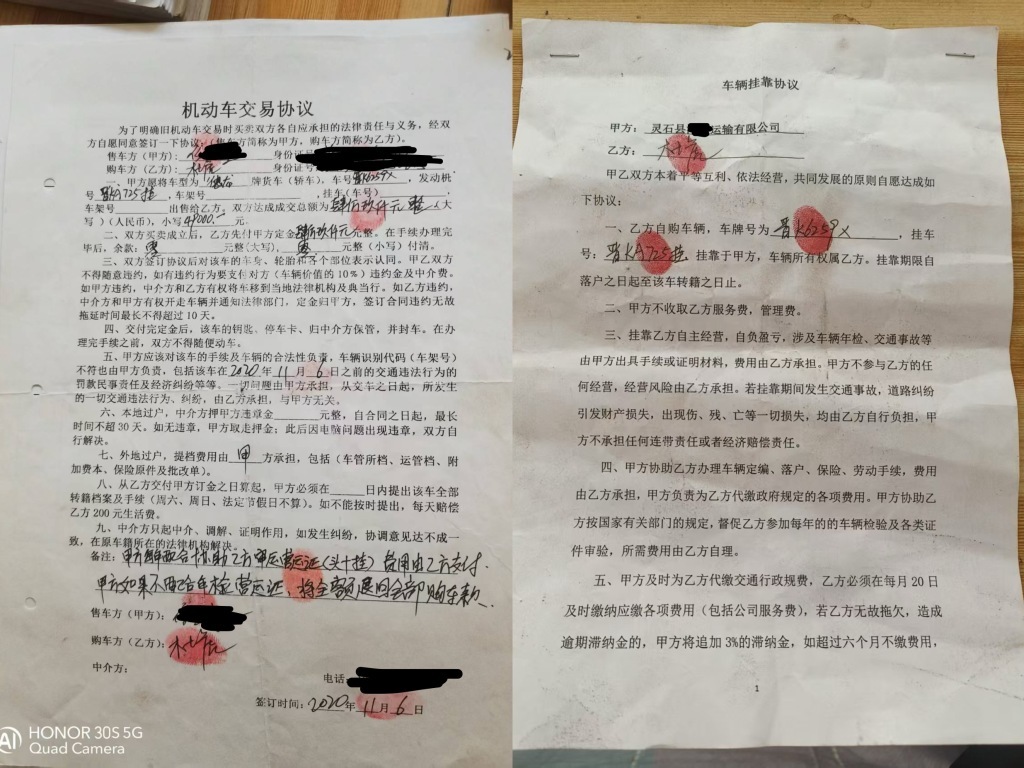 机动车交易协议
为了明确旧机动车交易时买卖双方各自应承担的法律责任与义务，经双
方自愿同意签订一下协议：（售车方简称为甲方，购车方简称为乙方）。
售车方（甲方）: 身份证号
购车方（乙方）: 身份证号
一、甲方愿将车型为 牌货车（轿车），车号晋K6259X，发动机
号晋KA725挂，车架号 ，挂车（车号） ，
车架号 出售给乙方，双方达成成交总额为肆万玖仟元整（大
写）（人民币），小写49000.-元。
二、双方买卖成立后，乙方先付甲方定金肆万玖仟元元整。在手续办理完
毕后，余款：零 元整（大写），零 元整（小写）付清。
三、双方签订协议后对该车的车身、轮胎和各个部位表示认同。甲乙双方
不得随意违约，如有违约行为要支付对方（车辆价值的10%）违约金及中介费。
如甲方违约，中介方和乙方有权将车移到当地法律机构及典当行。如乙方违约，
中介方和甲方有权开走车辆并通知法律部门，定金归甲方，签订合同违约无故
拖延时间最长不得超过10天。
四、交付完定金后，该车的钥匙、停车卡、归中介方保管，并封车。在办
理完手续之前，双方不得随便动车。
五、甲方应该对该车的手续及车辆的合法性负责，车辆识别代码（车架号）
不符也由甲方负责，包括该车在2020年11月6日之前的交通违法行为的
罚款民事责任及经济纠纷等等。一切问题由甲方承担，从交车之日起，所发生
的一切交通违法行为、纠纷，由乙方承担，与甲方无关。
六、本地过户，中介方押甲方违章金 元整，自合同之日起，最长
时间不超30天。如无违章，甲方取走押金；此后因电脑问题出现违章，双方自
行解决。
七、外地过户，提档费用由甲方承担，包括（车管所档、运管档、附
加费本、保险原件及批改单）。
八、从乙方交付甲方订金之日算起，甲方必须在 日内提出该车全部
转籍档案及手续（周六、周日、法定节假日不算）。如不能按时提出，每天赔偿
乙方200元生活费。
九、中介方只起中介、调解、证明作用，如发生纠纷，协调意见达不成一
致，在原车籍所在的法律机构解决。
备注：甲方 配合协助乙方 营运证（头+挂）费用由乙方支付.
甲方如果不 年检营运证，将全额退回全部购车款.
售车方（甲方）:
购车方（乙方）:
中介方：
电话：
签订时间：2020年11月6日
HONOR 30S 5G
Quad Camera
车辆挂靠协议
甲方：灵石县 运输有限公司
乙方：
甲乙双方本着平等互利、依法经营，共同发展的原则自愿达成如
下协议：
一、乙方自购车辆，车牌号为晋K6259X，挂车
号：晋KA725挂，挂靠于甲方，车辆所有权属乙方。挂靠期限自
落户之日起至该车转籍之日止。
二、甲方不收取乙方服务费，管理费。
三、挂靠乙方自主经营，自负盈亏，涉及车辆年检、交通事故等
由甲方出具手续或证明材料，费用由乙方承担。甲方不参与乙方的任
何经营，经营风险由乙方承担。若挂靠期间发生交通事故，道路纠纷
引发财产损失，出现伤、残、亡等一切损失，均由乙方自行负担，甲
方不承担任何连带责任或者经济赔偿责任。
四、甲方协助乙方办理车辆定编、落户、保险、劳动手续，费用
由乙方承担，甲方负责为乙方代缴政府规定的各项费用。甲方协助乙
方按国家有关部门的规定，督促乙方参加每年的的车辆检验及各类证
件审验，所需费用由乙方自理。
五、甲方及时为乙方代缴交通行政规费，乙方必须在每月20日
及时缴纳应缴各项费用（包括公司服务费），若乙方无故拖欠，造成
逾期滞纳金的，甲方将追加3%的滞纳金，如超过六个月不缴费用，
1